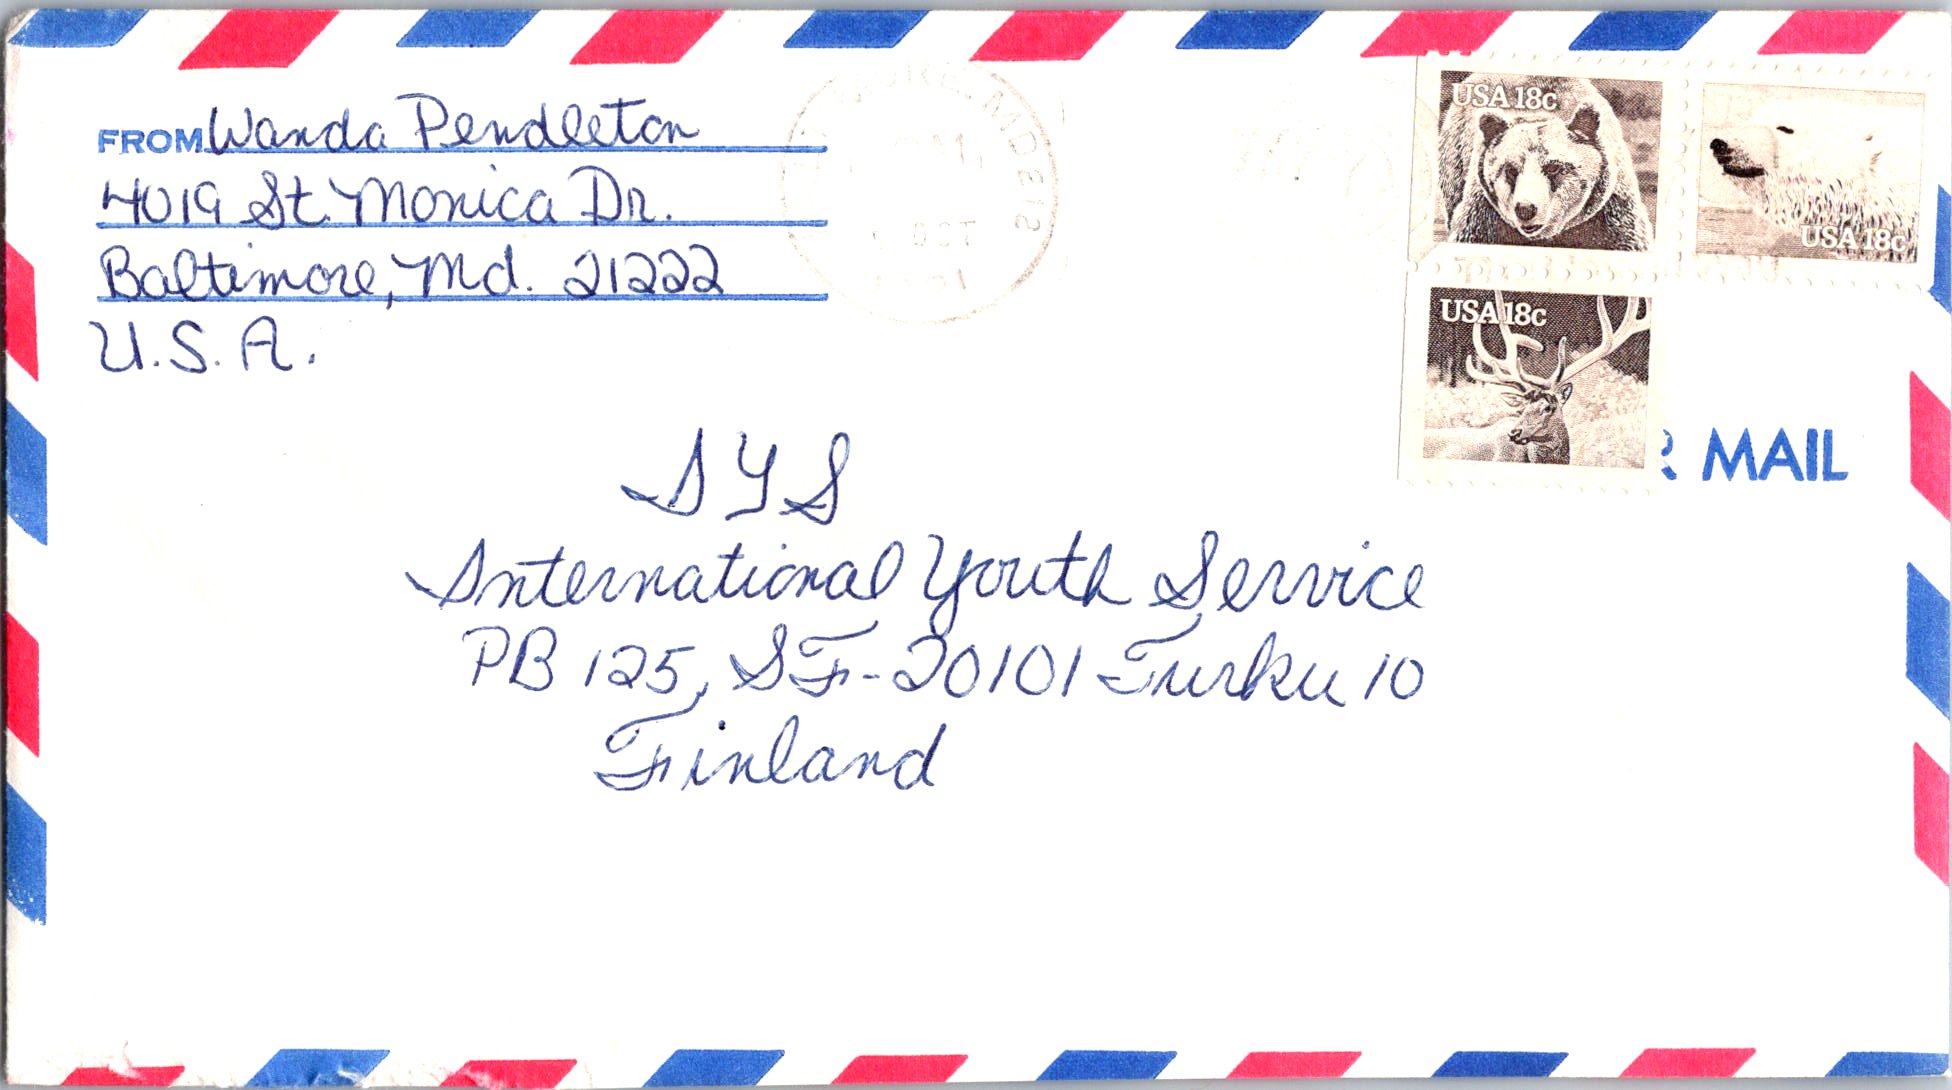 FROM Wanda Pendleton
4019 St. Monica Dr.
Baltimore, Md. 21222
U.S.A.
MD 212
OCT
USA 18c
USA 18c
USA 18c
MAIL
IYS
International Youth Service
PB 125, SF-20101 Turku 10
Finland